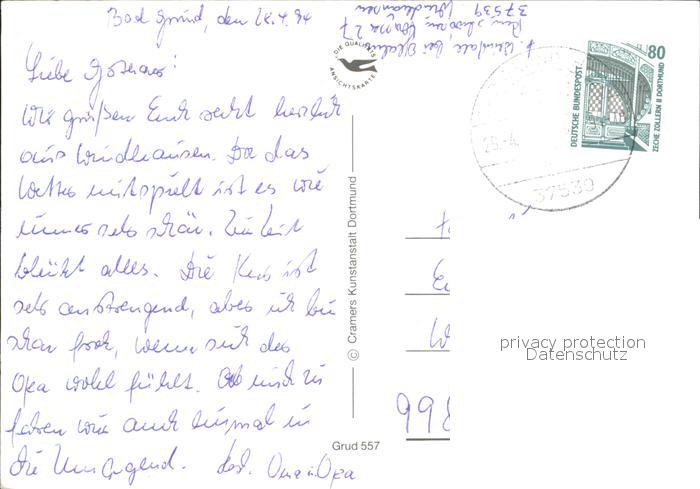 Bad Grund, den 28.4.94
Liebe
Wir grüßen Euch recht herzlich
aus Windhausen. Da das
Wetter mitspielt ist es wie
immer sehr schön. Zur Zeit
blüht alles. Die Kur ist
sehr anstrengend, aber ich bin
schon froh, wenn sich der
Opa wohl fühlt. Ab und zu
fahren wir auch einmal in
die Umgegend. Oma u. Opa
37539 Windhausen
DIE QUALITÄTS
ANSICHTSKARTE
© Cramers Kunstanstalt Dortmund
Grud 557
80
DEUTSCHE BUNDESPOST
ZECHE ZOLLERN II DORTMUND
37539
privacy protection
Datenschutz